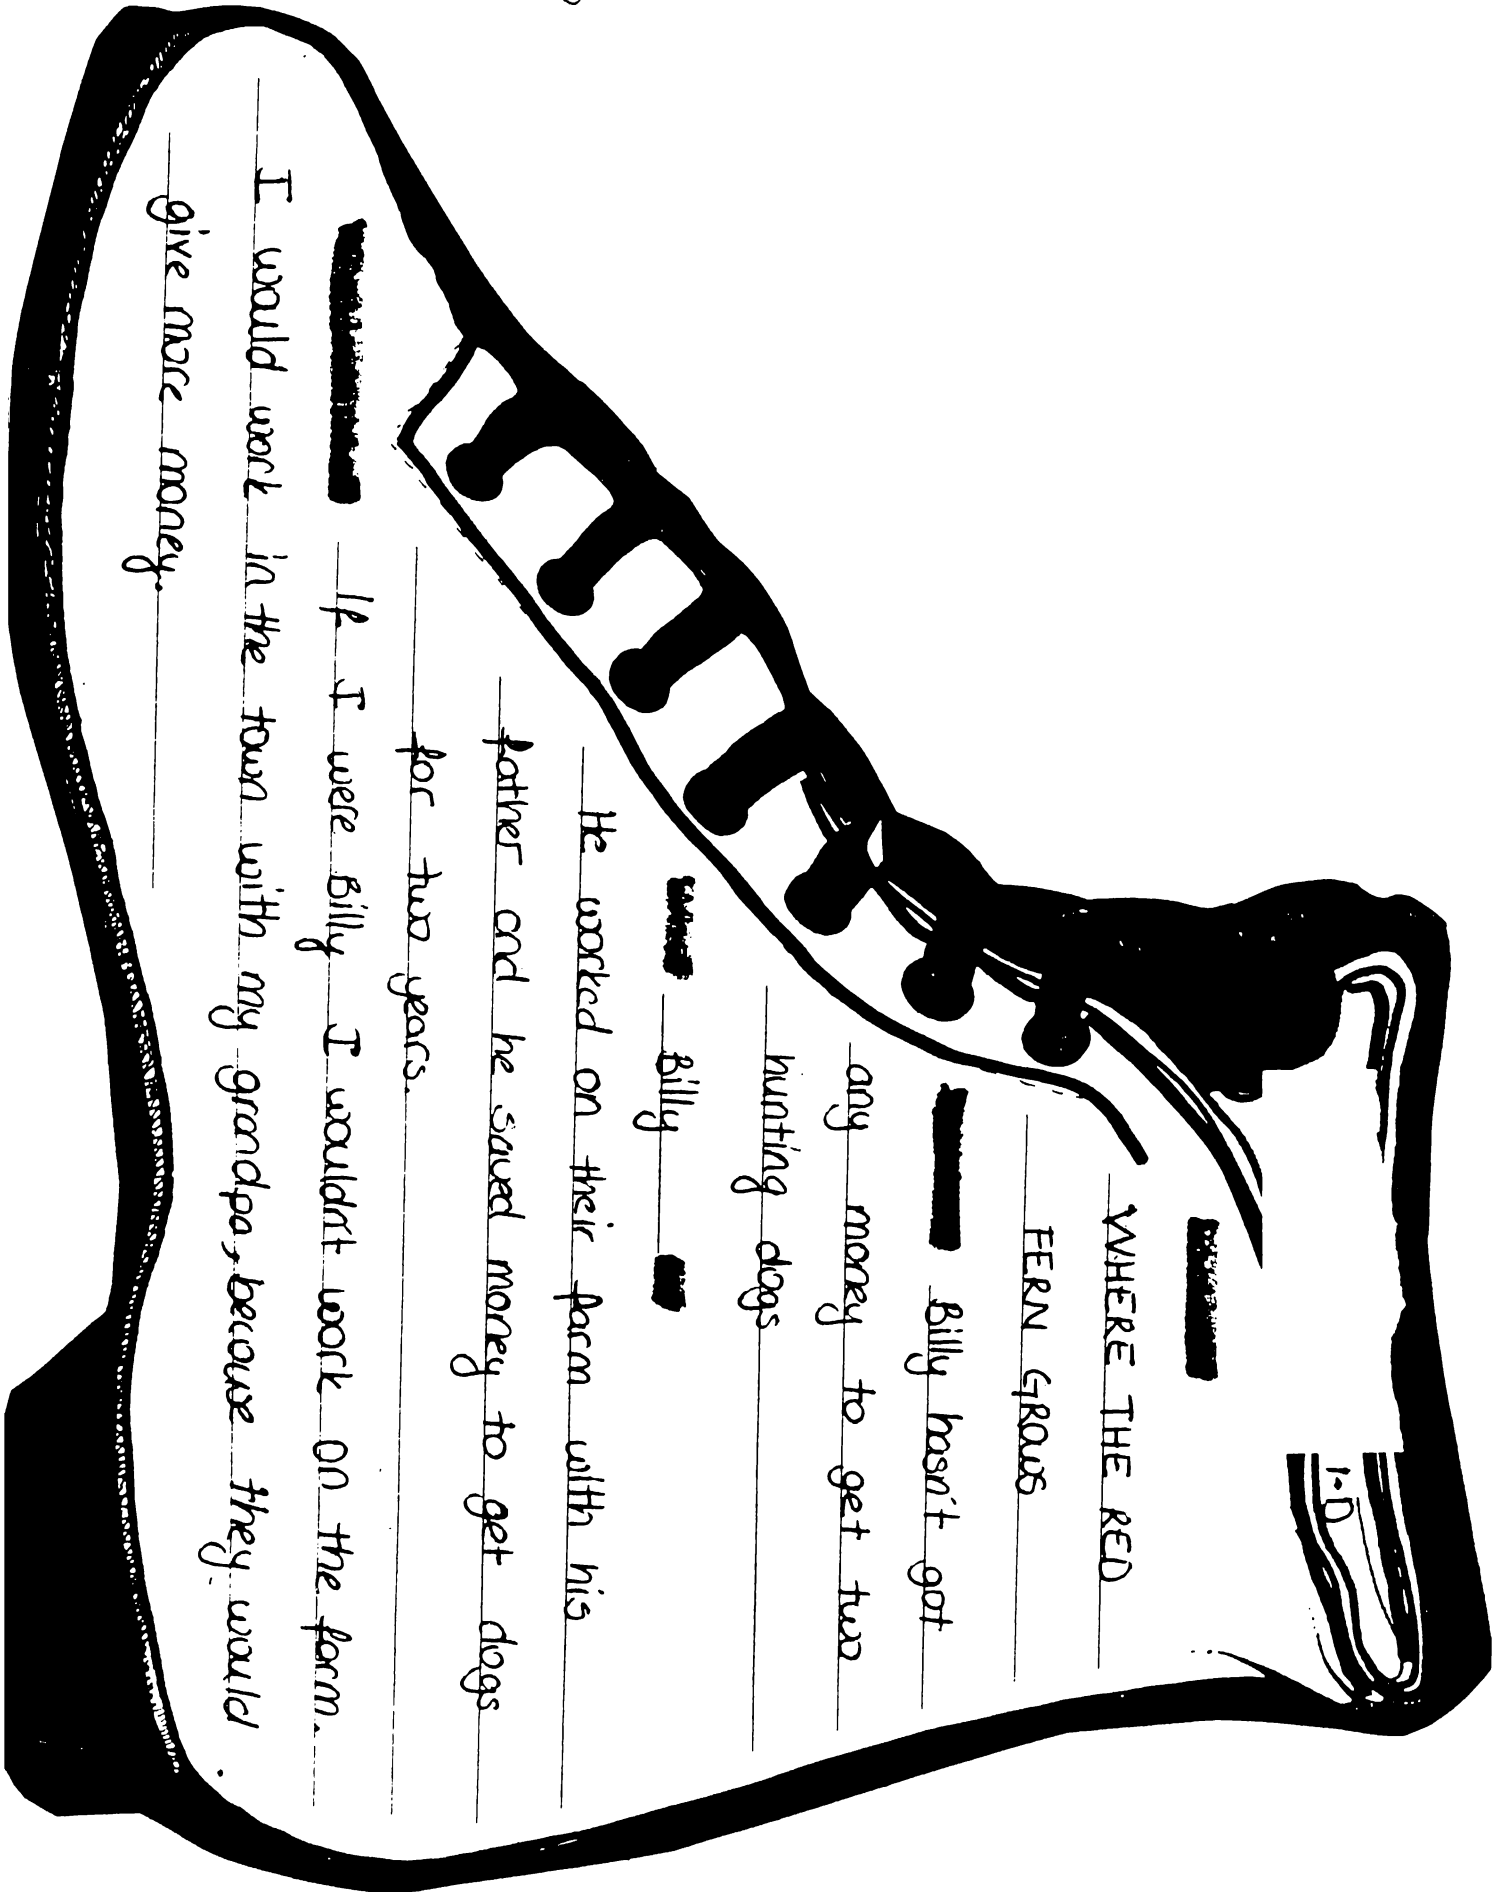 1-D
WHERE THE RED
FERN GROWS
Billy hasn't got
any money to get two
hunting dogs
Billy
He worked on their farm with his
father and he saved money to get dogs
for two years.
If I were Billy I wouldn't work on the farm.
I would work in the town with my grandpa, because they would
give more money.